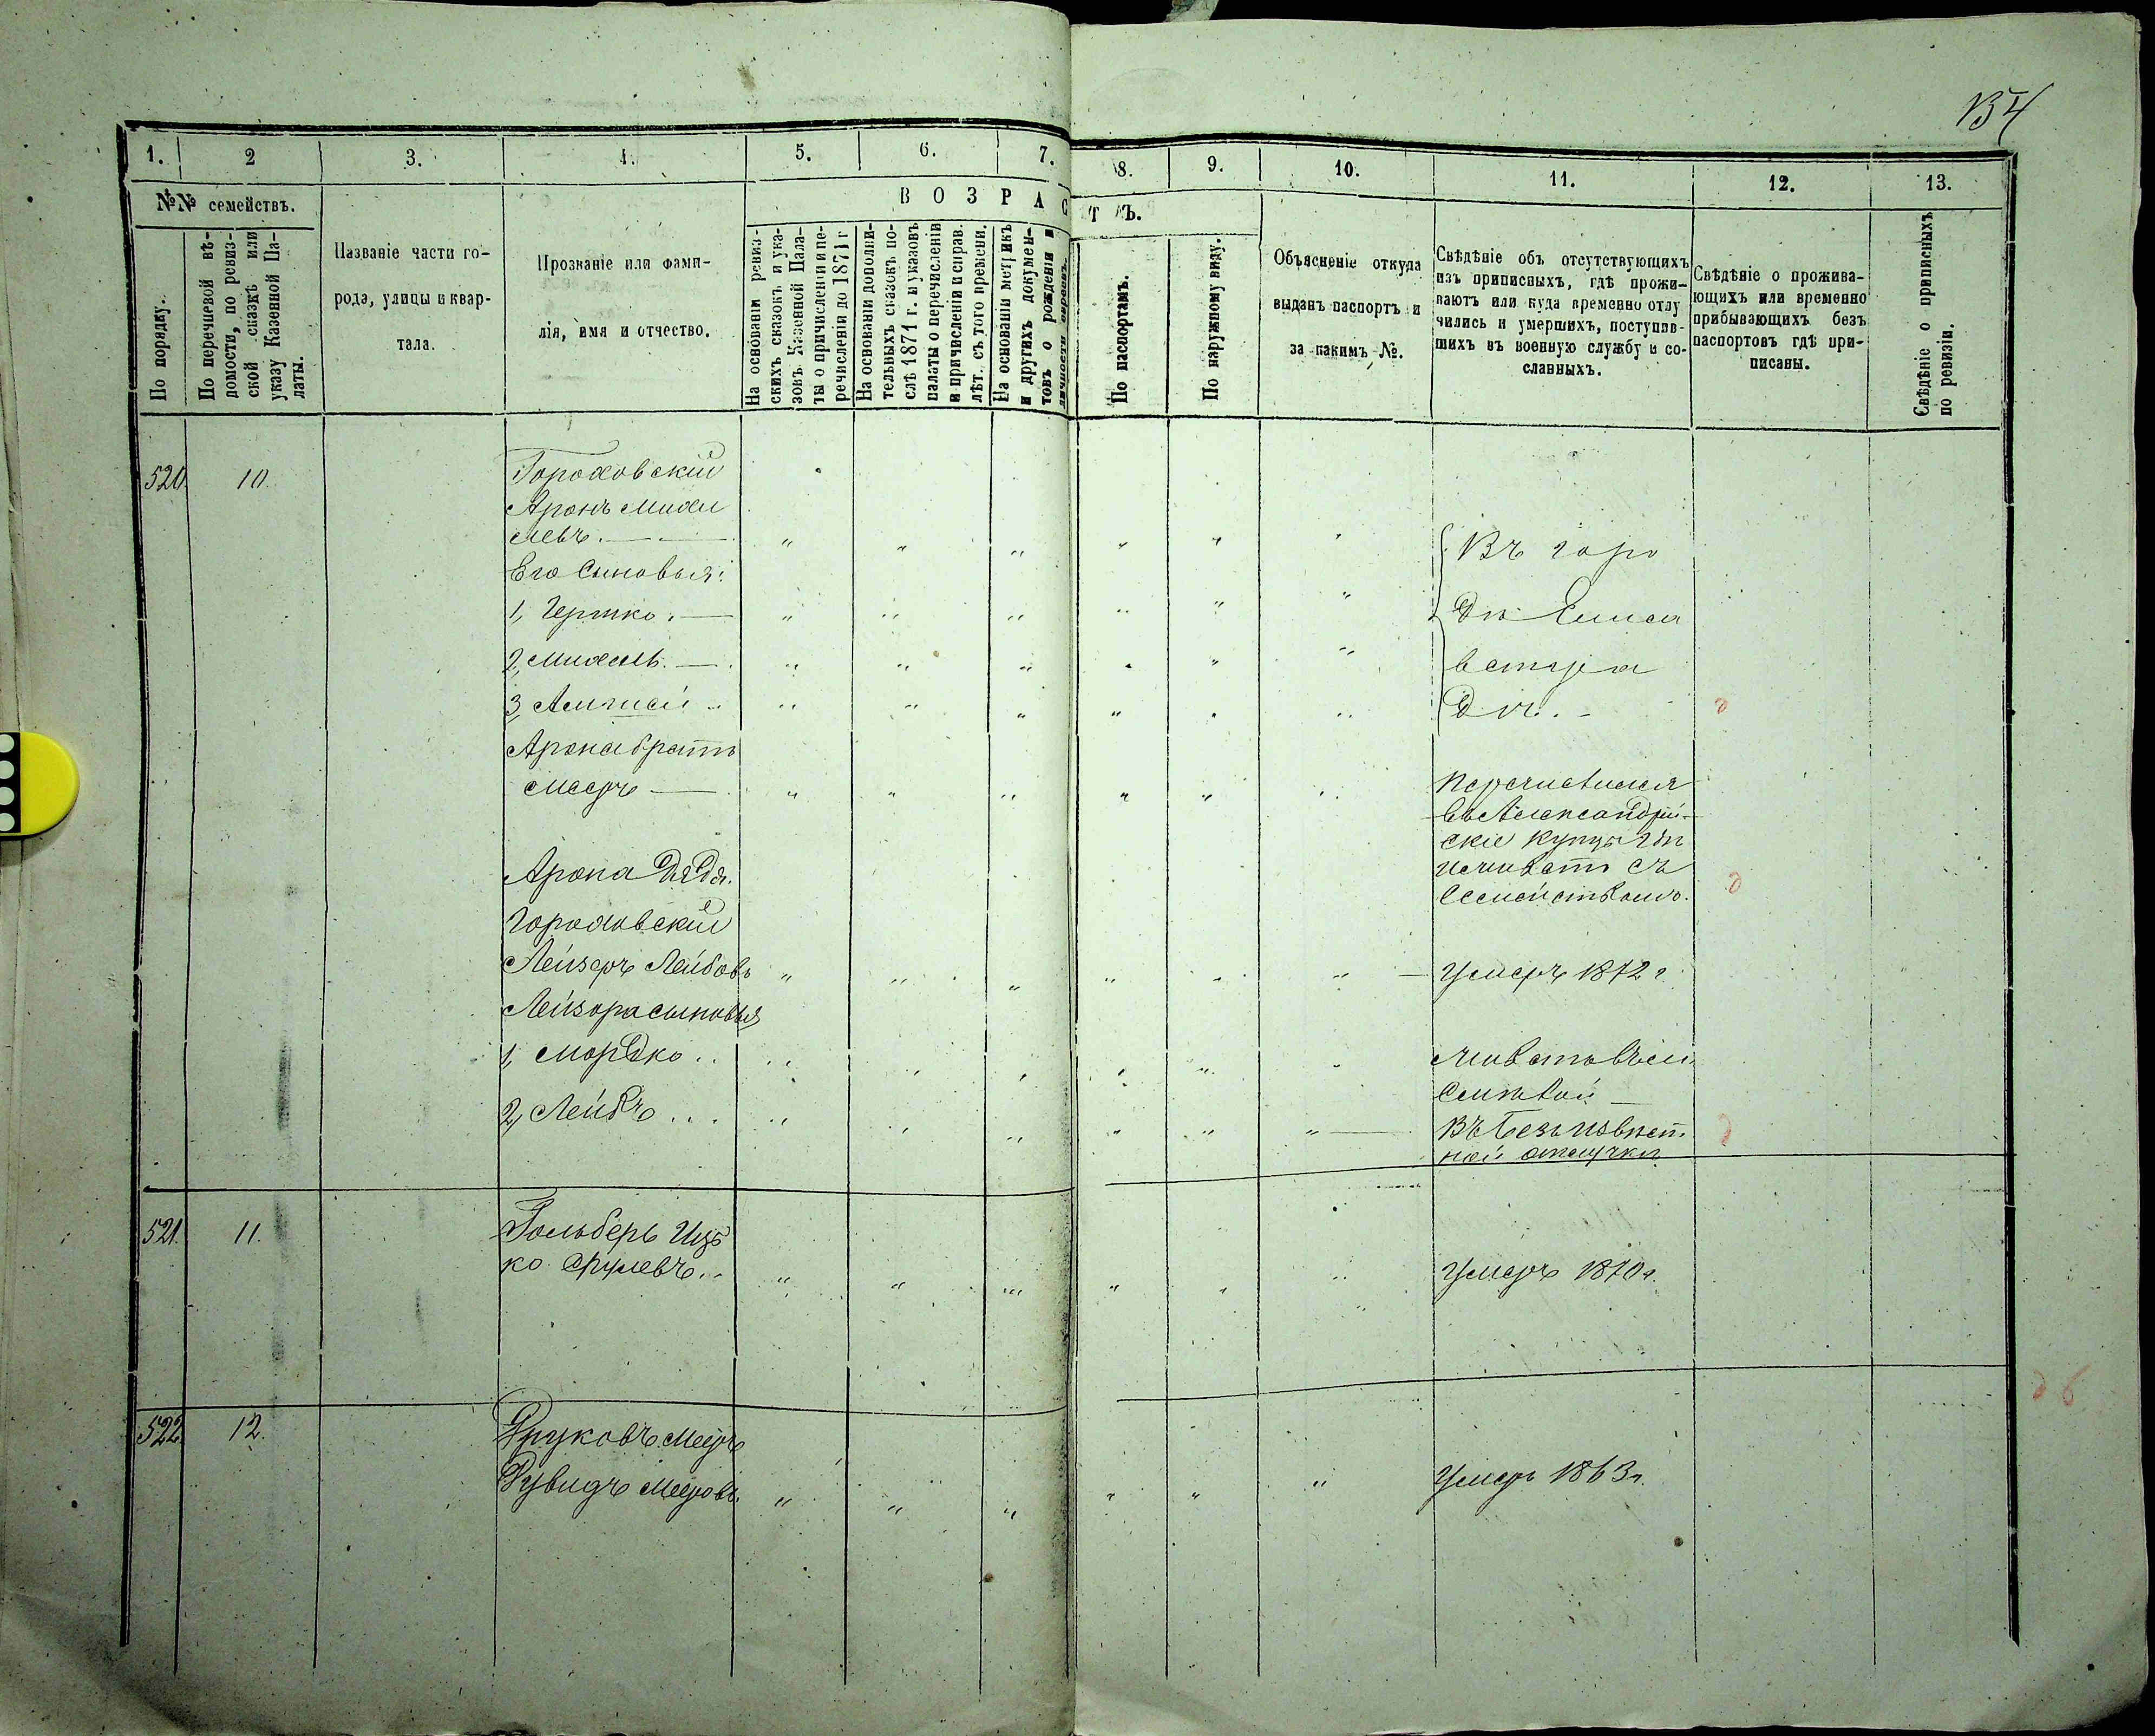 134
1. 2 3. 4. 5. 6. 7. 8. 9. 10. 11. 12. 13.
№№ семействъ.
По порядку.
По перечневой вѣ-
домости, по ревиз-
ской сказкѣ или
указу Казенной Па-
латы.
Названіе части го-
рода, улицы и квар-
тала.
Прозваніе или фами-
лія, имя и отчество.
ВОЗРАСТЪ.
На основаніи ревиз-
скихъ сказокъ и ука-
зовъ Казенной Пала-
ты о причисленіи и пе-
речисленіи до 1871 г
На основаніи дополни-
тельныхъ сказокъ по-
слѣ 1871 г. и указовъ
палаты о перечисленіи
и причисленіи и справ.
лѣт. съ того времени.
На основаніи метрикъ
и другихъ докумен-
товъ о рожденіи и
По паспортамъ.
По наружному виду.
Объясненіе откуда
выданъ паспортъ и
за какимъ №.
Свѣдѣніе объ отсутствующихъ
изъ приписныхъ, гдѣ прожи-
ваютъ или куда временно отлу
чились и умершихъ, поступив-
шихъ въ военную службу и со-
славныхъ.
Свѣдѣніе о прожива-
ющихъ или временно
прибывающихъ безъ
паспортовъ гдѣ при-
писаны.
Свѣдѣніе о приписныхъ
по ревизіи.
520. 10. Гороховскій
Аронъ Михе
левъ. — " " " " " "
Его Сыновья:
1, Гершко. — " " " " " "
2, Михель. — " " " " " "
3, " " " " " "
Въ горо
дѣ Елиса
ветгра
дѣ. —
Арона братъ
Мееръ — " " " " " "
Перечислился
въ Александрій-
скіе купцы гдѣ
и живетъ съ
Семействомъ.
Арона дядя.
Гороховскій
Лейзеръ Лейбовъ " " " " " " — Умеръ 1872 г.
Лейзора сыновья
1, Мордко .. " " " " " "
2, Лейбъ ... " " " " " " —
Въ безъизвѣст
ной отлучкѣ
521. 11. Гольберъ Иц
ко Срулевъ.. " " " " " " Умеръ 1870 г.
522. 12. Друковъ Меер
Мееровъ. " " " " " " Умеръ 1863 г.